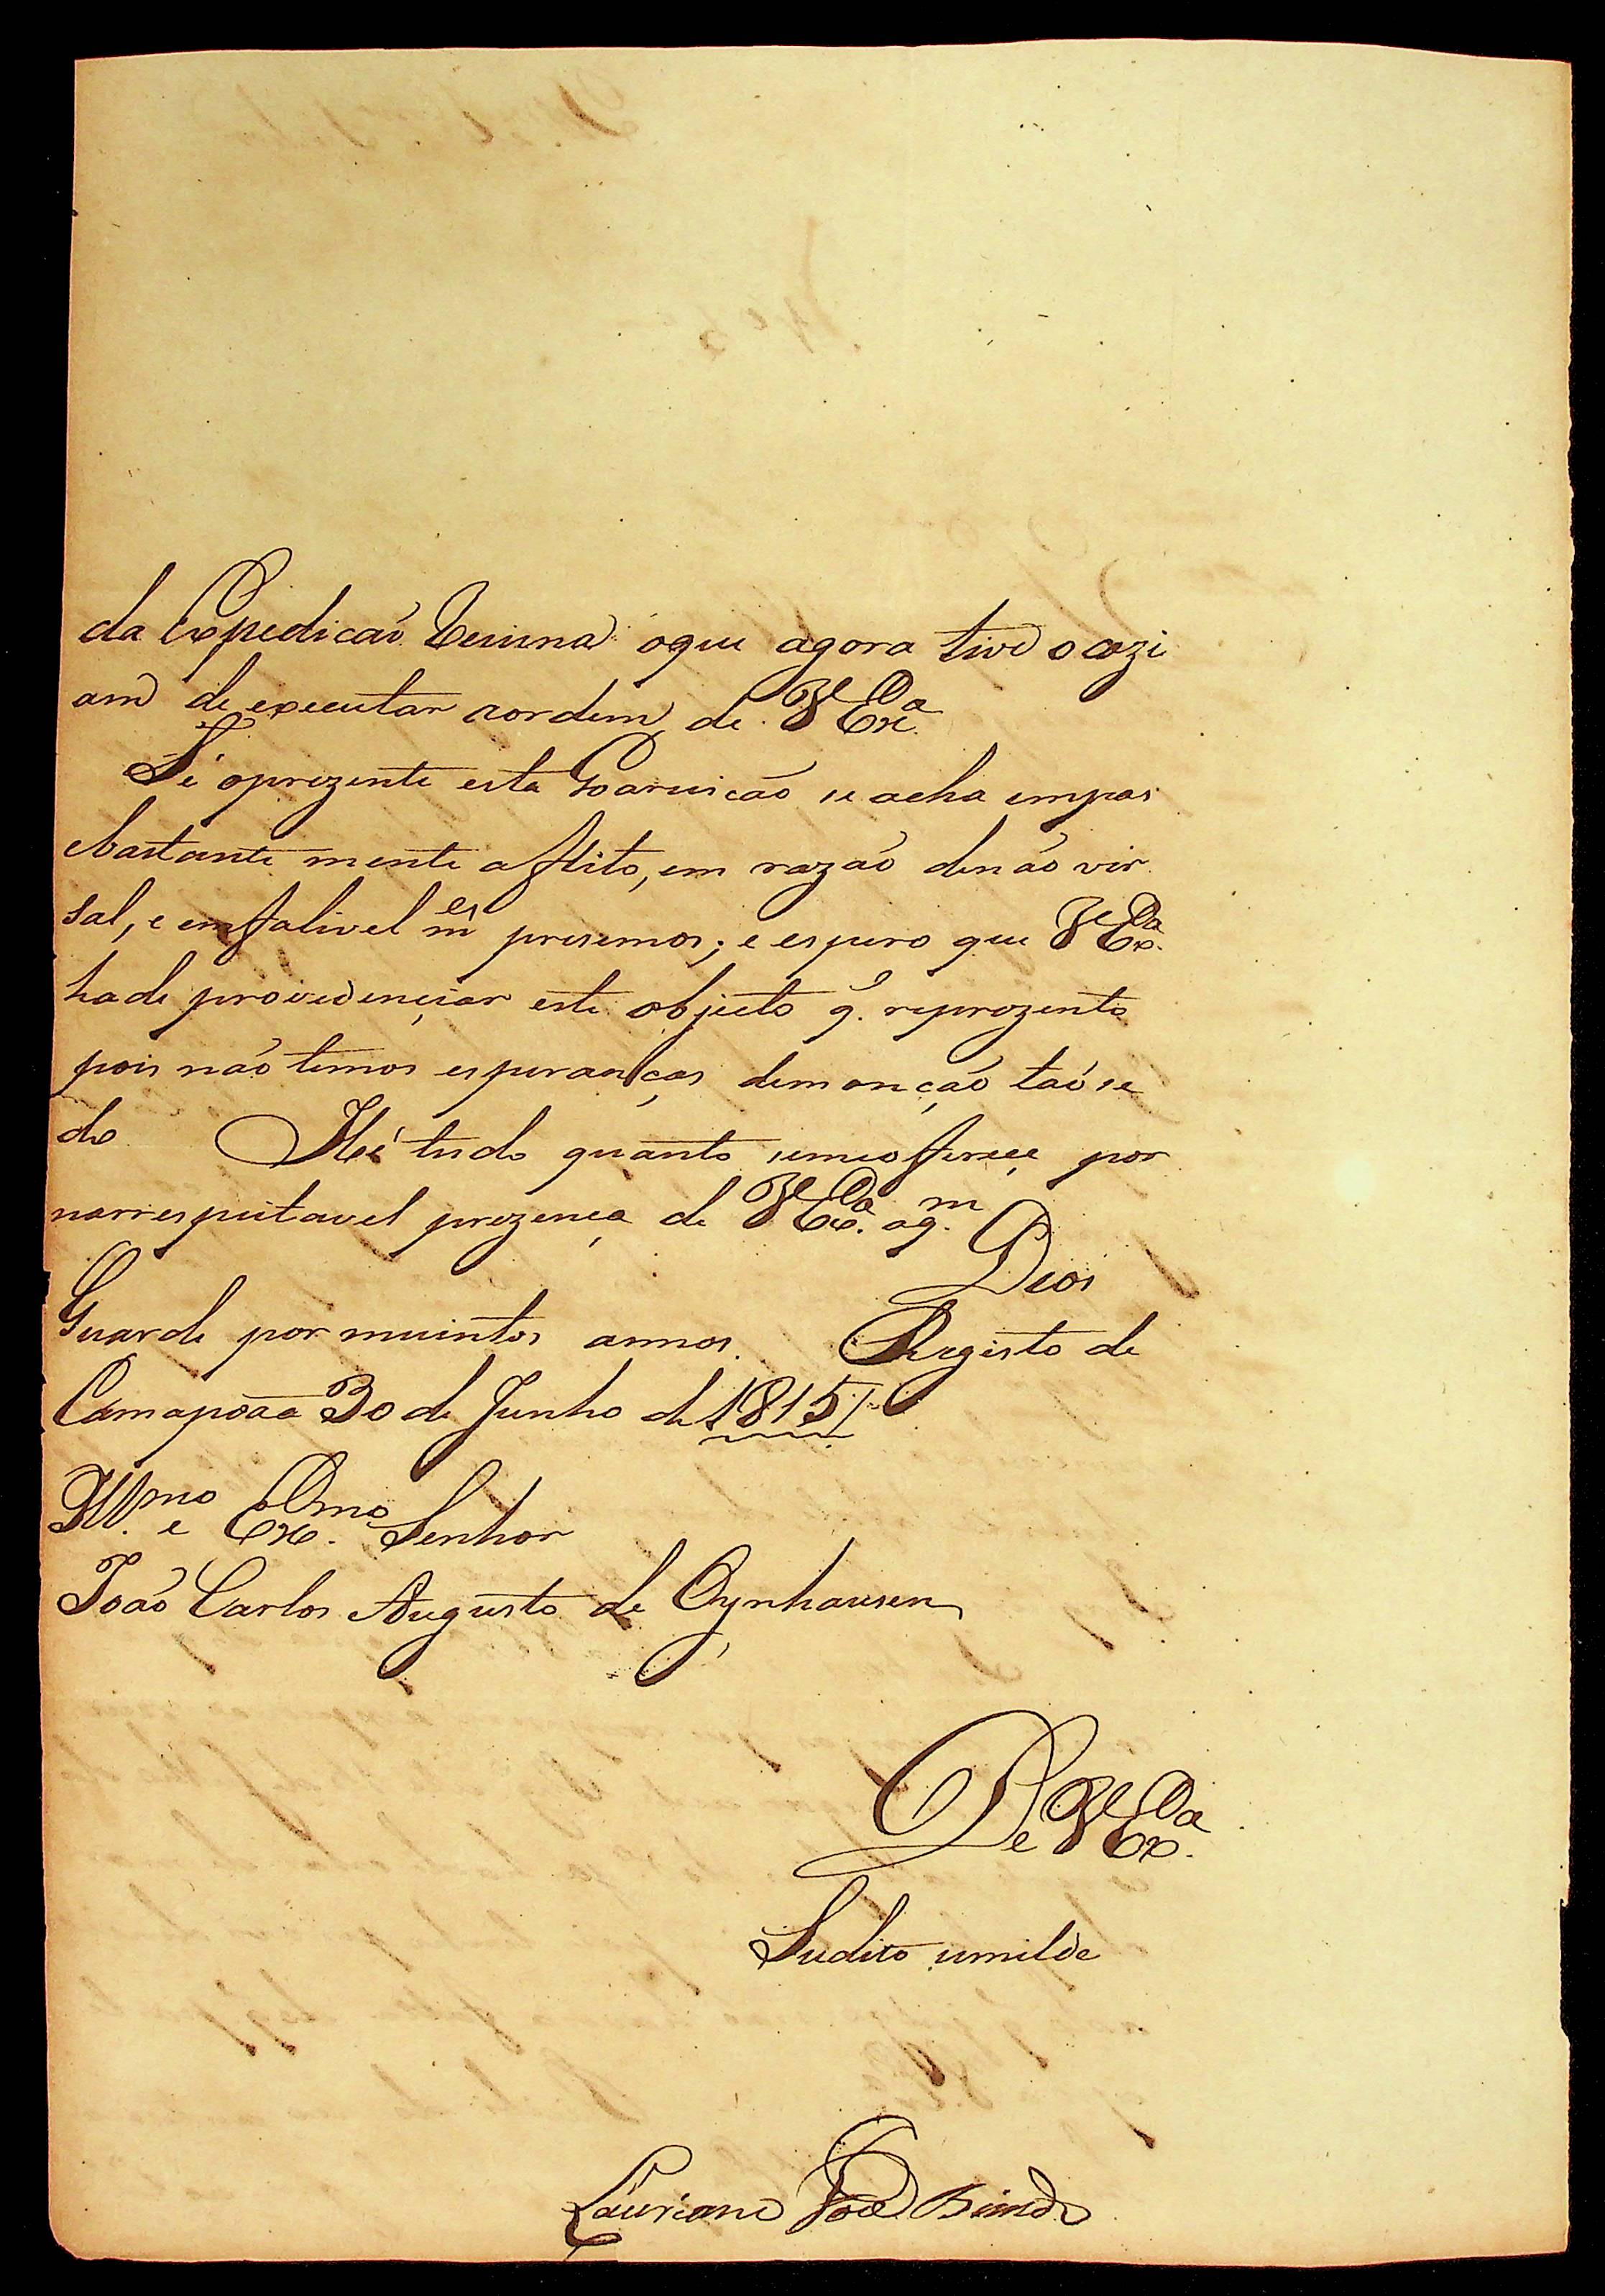 da Expedicaõ oque agora tive ocazi
am de executar aordem de VEx.ª
Té oprezente esta Goarnicáo se acha empas
ebastante mente aflito, em razaõ denáo vir
sal, e emfalivel m.es presemos; e espero que VEx.ª
hade providençiar este objecto q̃. reprezento
pois náo temos esperanças demonçaõ taõ se
do Hé tudo quanto semeoferece por
narrespeitavel prezença de VEx.ª aq.m Deos
Guarde por muintos annos. Registo de
Camapoaã 30 de Junho de 1815,,
Ill.mo e Ex.mo Senhor
Joaõ Carlos Augusto de Oynhausen
De VEx.ª
Sudito umilde
Lauriano Joze